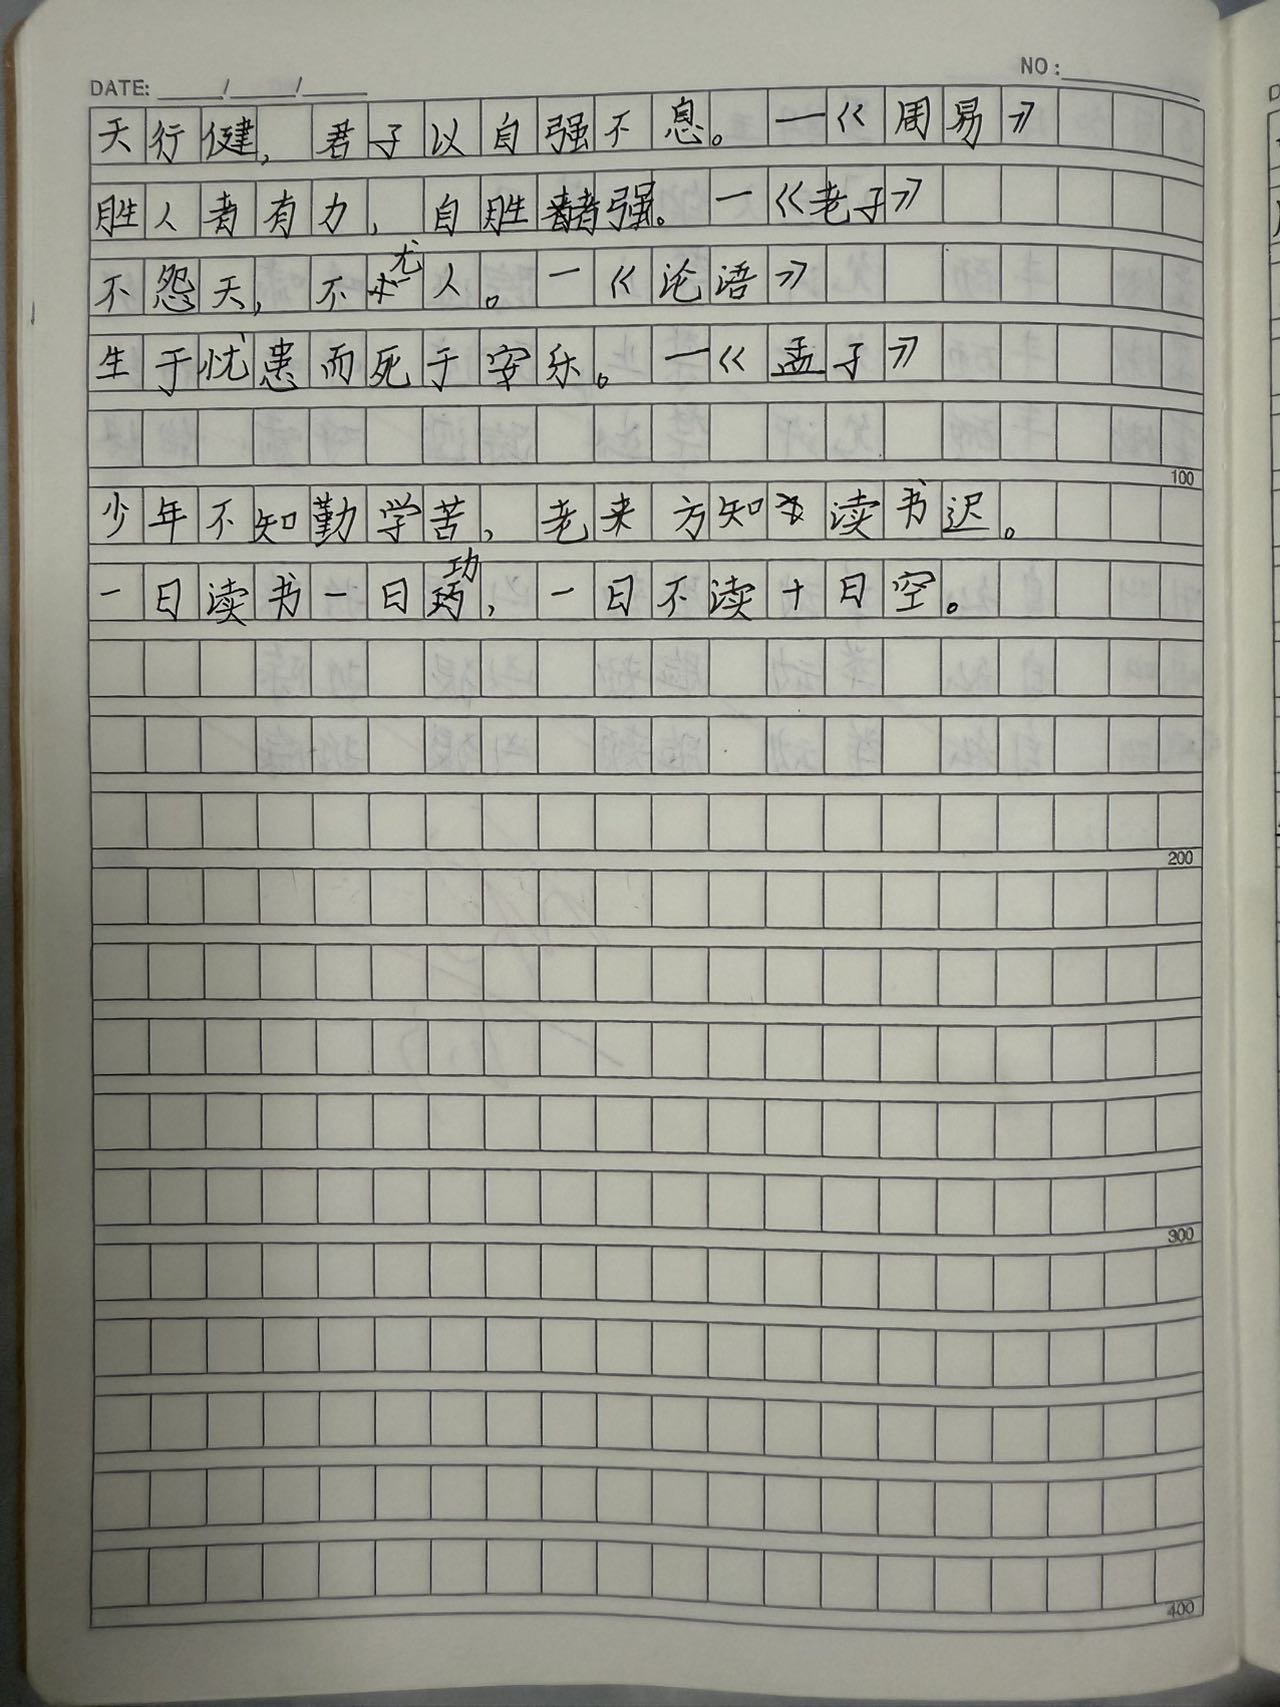 DATE: ____/____/____
NO:
天行健，君子以自强不息。—《周易》
胜人者有力，自胜者强。—《老子》
不怨天，不尤人。—《论语》
生于忧患而死于安乐。—《孟子》
100
少年不知勤学苦，老来方知读书迟。
一日读书一日功，一日不读十日空。
200
300
400